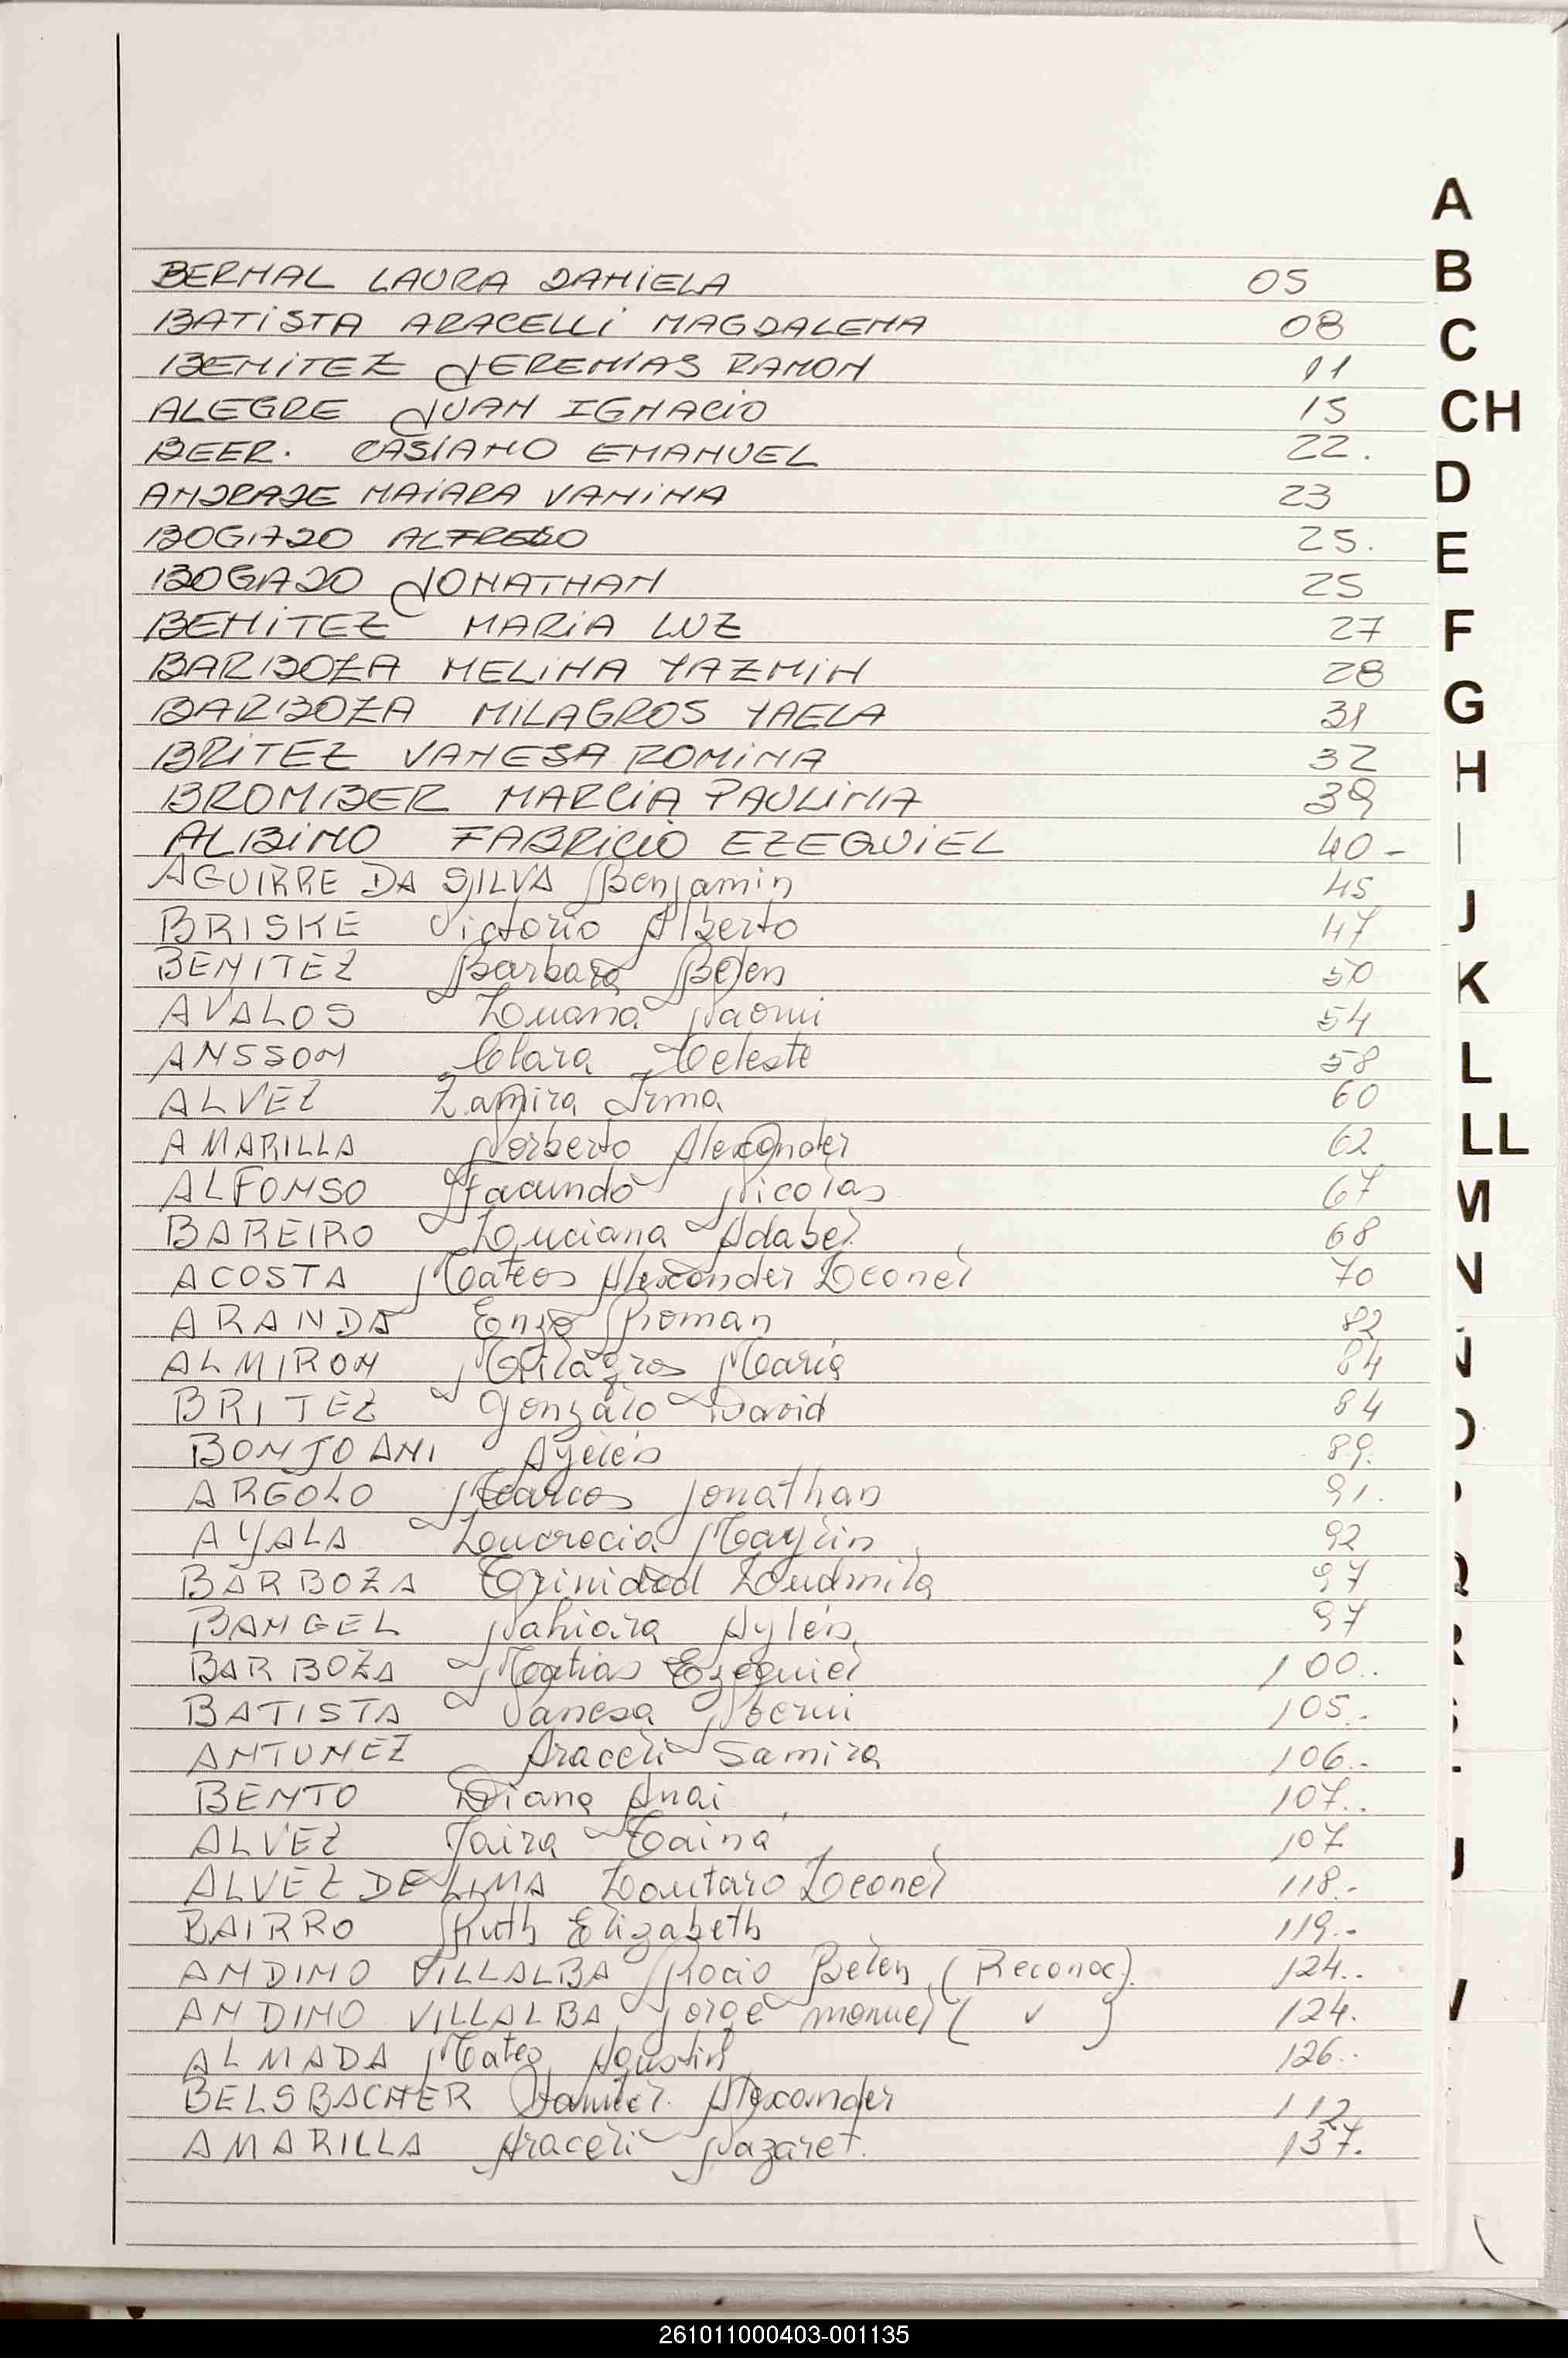 BERNAL LAURA DANIELA 05
BATISTA ARACELLI MAGDALENA 08
BENITEZ JEREMIAS RAMON 11
ALEGRE JUAN IGNACIO 15
BEER. CASIANO EMANUEL 22.
ANDRADE MAIARA VANINA 23
BOGADO ALFREDO 25.
BOGADO JONATHAN 25
BENITEZ MARIA LUZ 27
BARBOZA MELINA YAZMIN 28
BARBOZA MILAGROS YAELA 31
BRITEZ VANESA ROMINA 32
BROMBER MARCIA PAULINA 39
ALBINO FABRICIO EZEQUIEL 40-
AGUIRRE DA SILVA Benjamin 45
BRISKE Victorio Alberto 47
BENITEZ Barbara Belen 50
AVALOS Luana Naomi 54
ANSSON Clara Celeste 58
ALVEZ Zamira Irma 60
AMARILLA Norberto Alexander 62
ALFONSO Facundo Nicolas 67
BAREIRO Luciana Adabel 68
ACOSTA Mateos Alexander Leonel 70
ARANDA Enzo Roman 82
ALMIRON Milagros Maria 84
BRITEZ Gonzalo David 84
BONJOANI Ayelen 89.
ARGOLO Marcos Jonathan 91.
AYALA Lucrecia Maylin 92
BARBOZA Trinidad Ludmila 97
BANGEL Nahiara Aylén 97
BARBOZA Matias Ezequiel 100..
BATISTA Vanesa Noemi 105.-
ANTUNEZ Araceli Samira 106.-
BENTO Diana Anai 107..
ALVEZ Jaira Tainá 107
ALVEZ DE LIMA Lautaro Leonel 118.-
BAIRRO Ruth Elizabeth 119.-
ANDINO VILLALBA Rocio Belen (Reconoc). 124..
ANDINO VILLALBA Jorge manuel ( ✓ ) 124.
ALMADA Mateo Agustin 126..
BELSBACHER Daniel Alexander 112
AMARILLA Araceli Nazaret. 137.
A
B
C
CH
D
E
F
G
H
I
J
K
L
LL
M
N
261011000403-001135